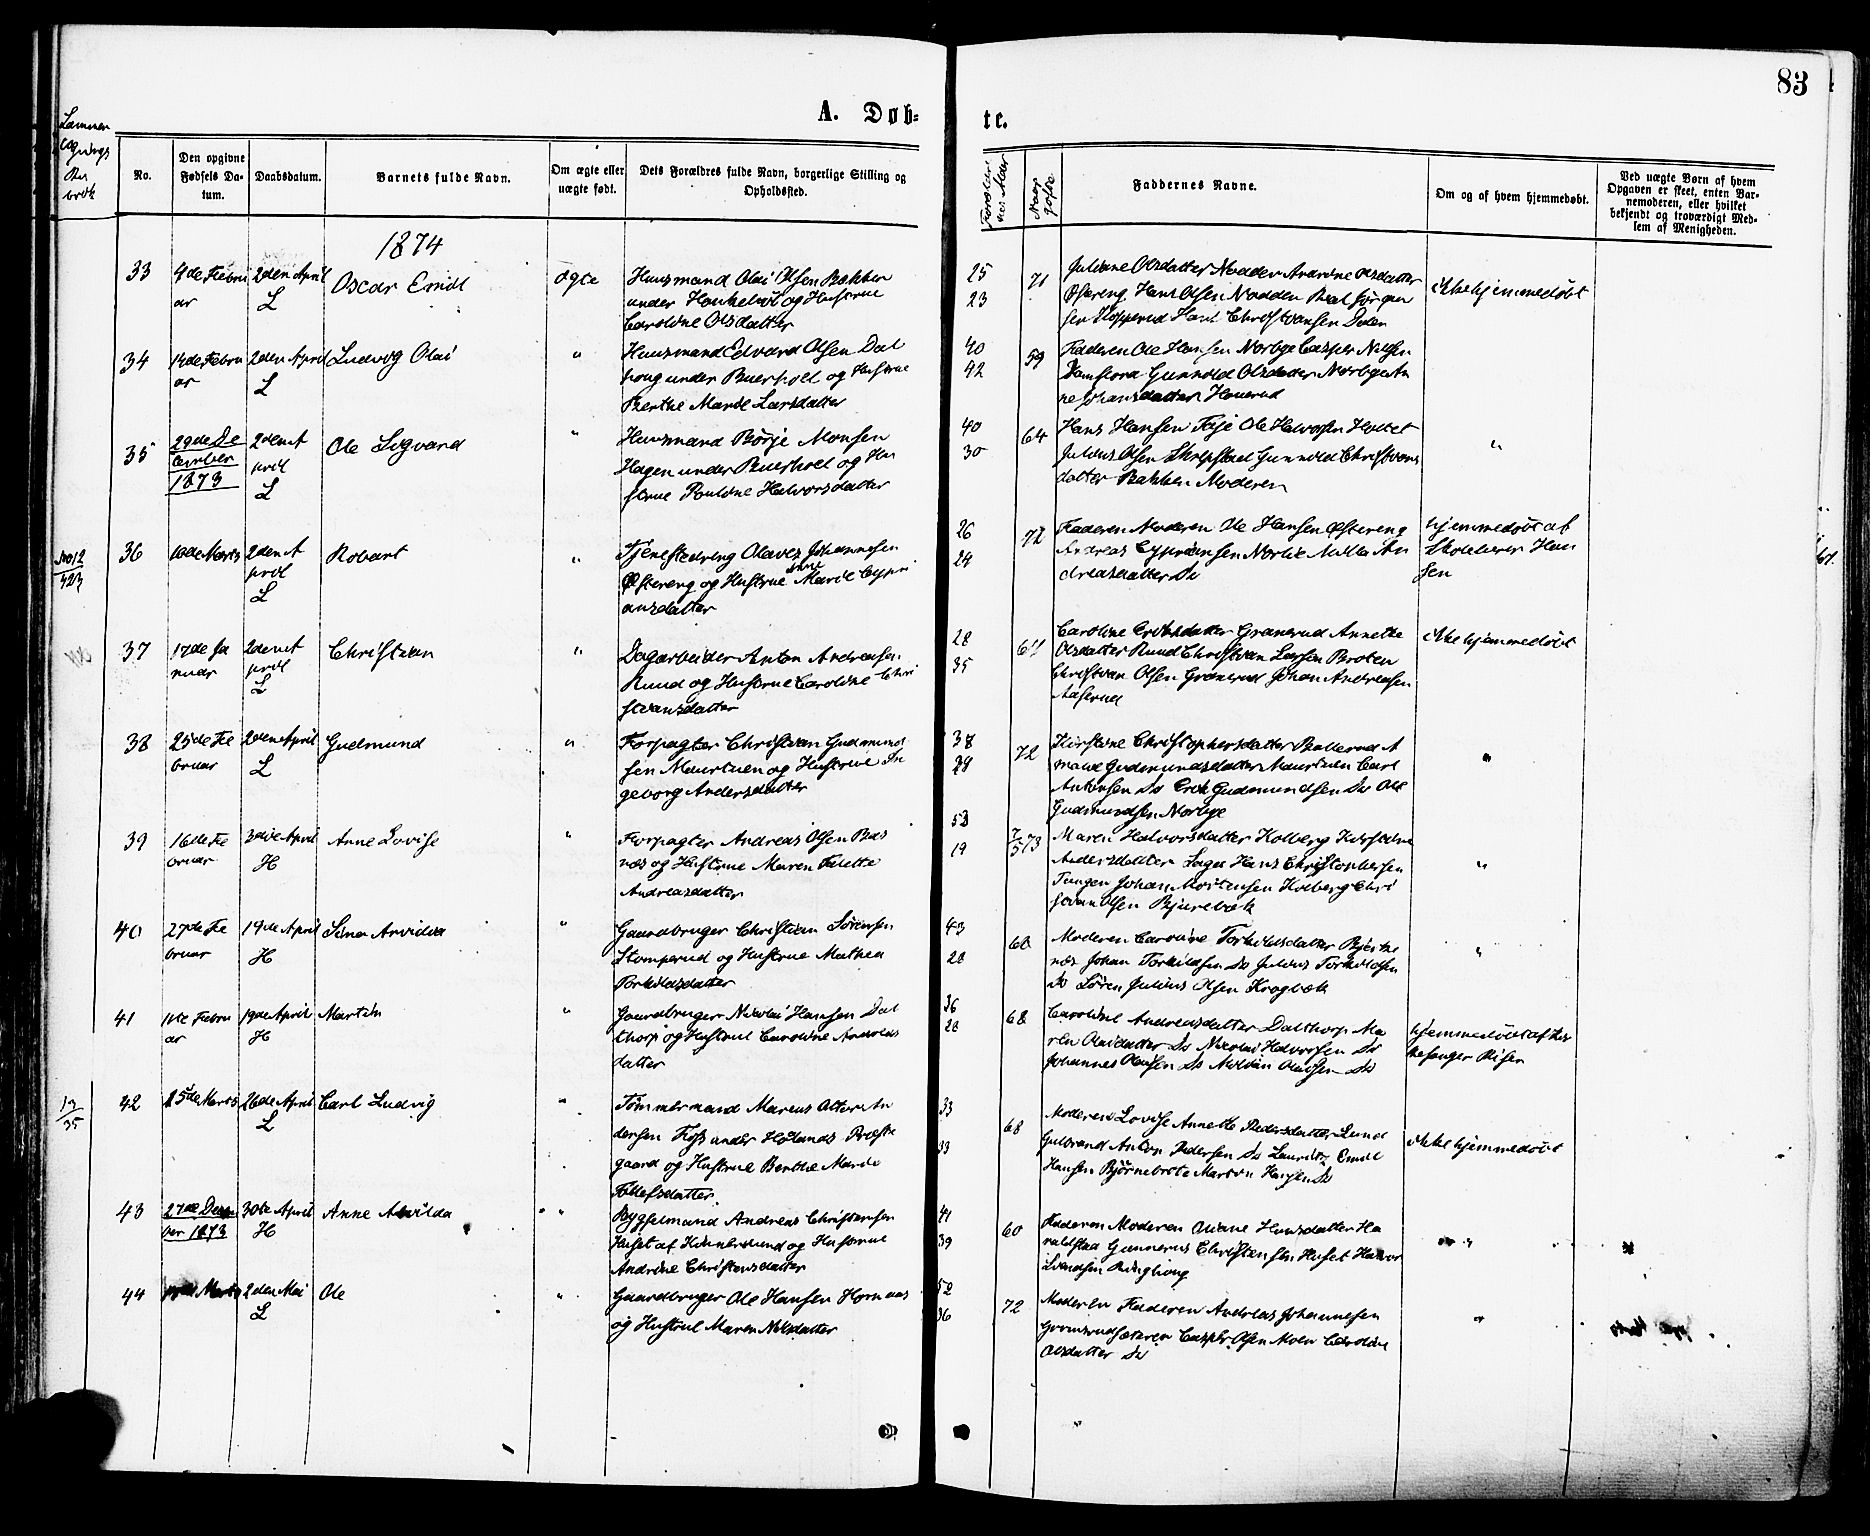 83
A. Døb-
te.
No.
Den opgivne Fødsels Da-
tum.
Daabsdatum.
Barnets fulde Navn.
Om ægte eller
uægte født.
Dets Forældres fulde Navn, borgerlige Stilling og
Opholdssted.
Faddernes Navne.
Om og af hvem hjemmedøbt.
Ved uægte Børn af hvem
Opgaven er skeet, enten Bar-
nemoderen, eller hvilket
bekjendt og troværdigt Med-
lem af Menigheden.
1874
33
4de Febru
ar
2den April
L
Oscar Emil
ægte
Huusmand Olai Olsen Bakken
under og Hustrue
Caroline Olsdatter
25
23
71
Juliane Olsdatter Nodden Andrine Olsdatter
Østereng Hans Olsen Nodden Beat Jørgen
sen Kopperud Hans Christiansen
ikke hjemmedøbt
34
14de Febru
ar
2den April
L
Ludvig Olai
"
Huusmand Edvard Olsen Dal
haug under Buerhol og Hustrue
Berthe Marie Larsdatter
40
42
59
Faderen Ole Hansen Norbye Casper Nilsen
Gunnild Olsdatter Norbye An
ne Johansdatter
35
29de De
cember
1873
2den A
pril
L
Ole Sigvard
"
Huusmand Børje Monsen
Hagen under Buerhol og Hu
strue Pauline Halvorsdatter
40
30
64
Hans Hansen Ole Halvorsen Holtet
Julius Olsen Gunnild Christians
datter Bakken Moderen
"
36
10de Marts
2den A
pril
L
Robart
"
Olaves Johannesen
Østereng og Hustrue Anne Marie Cypri
ansdatter
26
24
72
Faderen Moderen Ole Hansen Østereng
Andreas Cypriansen Norlie Milla An
dreasdatter Do
hjemmedøbt af
Skolelærer Han
sen
37
17de Ja
nuar
2den A
pril
L
Christian
"
Dagarbeider Anton Andresen
Ruud og Hustrue Caroline Chri
stiansdatter
28
35
61
Caroline Eriksdatter Granerud Annette
Olsdatter Ruud Christian Larsen Broten
Christian Olsen Granerud Johan Andresen
Aaserud
ikke hjemmedøbt
38
25de Fe
bruar
2den April
L
Gudmund
"
Forpagter Christian Gudmund
sen Maurtuen og Hustrue In
geborg Andersdatter
38
29
72
Kirstine Christophersdatter Bollerud A
malie Gudmundsdatter Maurtuen Carl
Antonsen Do Erik Gudmundsen Do Ole
Gudmundsen Norbye
"
39
16de Fe
bruar
3die April
H
Anne Lovise
"
Forpagter Andreas Olsen Bas
næs og Hustrue Maren
Andreasdatter
53
19
73
Maren Halvorsdatter Kolberg Kirstine
Andersdatter Hans Christophersen
Tangen Johan Mortensen Kolberg Chri
stian Olsen Bjurebæk
"
40
27de Fe
bruar
19de April
H
Sina Arvida
"
Gaardbruger Christian Sørensen
Stomperud og Hustrue Mathea
Torkildsdatter
43
28
60
Moderen Caroline Torkildsdatter Bjerke
næs Johan Torkildsen Do Julius Torkildsen
Do Søren Julius Olsen Krogbæk
"
41
11te Febru
ar
19de April
H
Martin
"
Gaardbruger Nicolai Hansen Dal
thorp og Hustrue Caroline Andreas
datter
36
28
68
Caroline Andreasdatter Dalthorp Ma
ren Olaisdatter Do Nicolai Halvorsen Do
Johannes Olausen Do Olausen Do
hjemmedøbt af Kir
kesanger Riser
13
35
42
25de Marts
26de April
L
Carl Ludvig
"
Tømmermand Marcus An
dersen Foss under Hølands Præste
gaard og Hustrue Berthe Marie
Tollefsdatter
33
33
68
Moderen Lovise Annette Pedersdatter Lund
Gulbrand Anton Pedersen Do Lauritz Emil
Hansen Bjørnebrote Martin Hansen Do
ikke hjemmedøbt
43
27de Decem
ber 1873
30te April
H
Anne Alvilda
"
Bygselmand Andreas Christensen
Huset af og Hustrue
Andrine Christensdatter
41
39
60
Faderen Moderen Oliane Hansdatter Ha
raldstad Gunnerus Christensen Huset Halvor
Svendsen Ringhoug
"
44
Marts
2den Mai
L
Ole
"
Gaardbruger Ole Hansen Hornnæs
og Hustrue Maren Nilsdatter
52
36
72
Moderen Faderen Andreas Johannesen
Casper Olsen Moen Caroline
Olsdatter Do
"